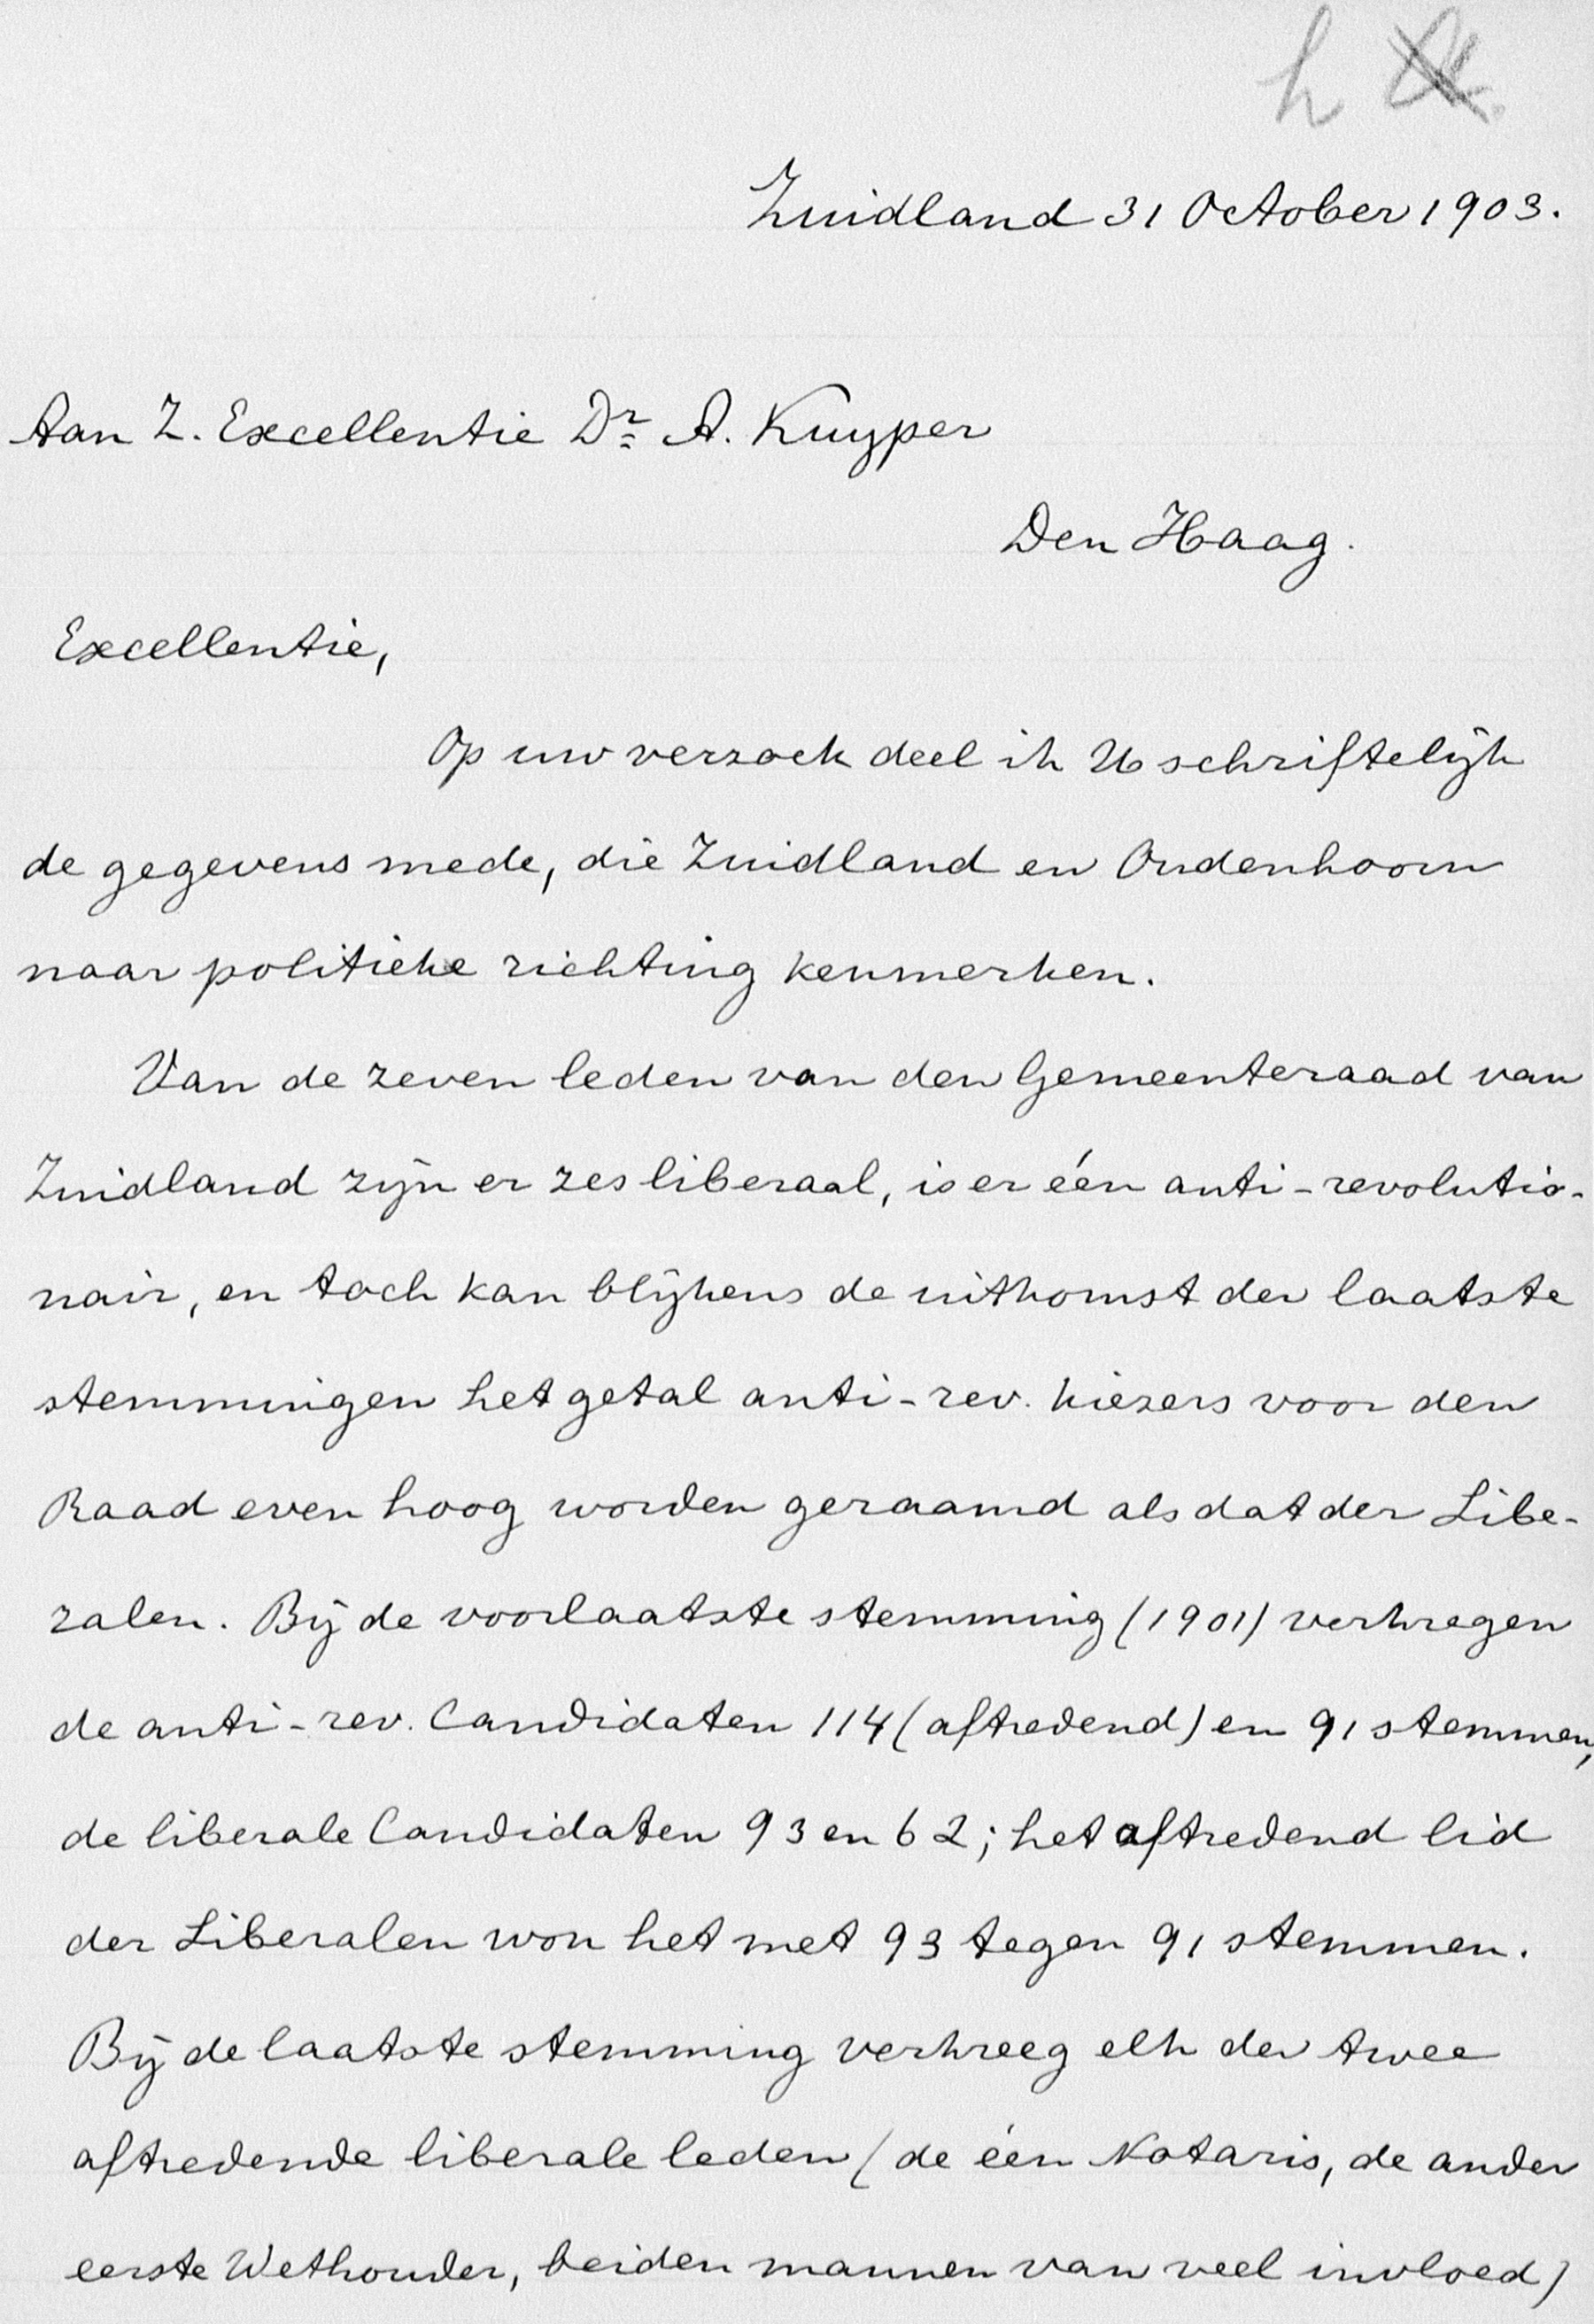 h
Zuidland 31 October 1903.
Aan Z. Excellentie Dr. A. Kuyper
Den Haag.
Excellentie,
Op uw verzoek deel ik U schriftelijk
de gegevens mede, die Zuidland en Oudenhoorn
naar politieke richting kenmerken.
Van de zeven leden van den Gemeenteraad van
Zuidland zijn er zes liberaal, is er één anti-revolutio-
nair, en toch kan blijkens de uitkomst der laatste
stemmingen het getal anti-rev. kiezers voor den
Raad even hoog worden geraamd als dat der Libe-
ralen. Bij de voorlaatste stemming (1901) verkregen
de anti-rev. Candidaten 114 (aftredend) en 91 stemmen,
de liberale Candidaten 93 en 62; het aftredend lid
der Liberalen won het met 93 tegen 91 stemmen.
Bij de laatste stemming verkreeg elk der twee
aftredende liberale leden (de één Notaris, de ander
eerste Wethouder, beiden mannen van veel invloed)